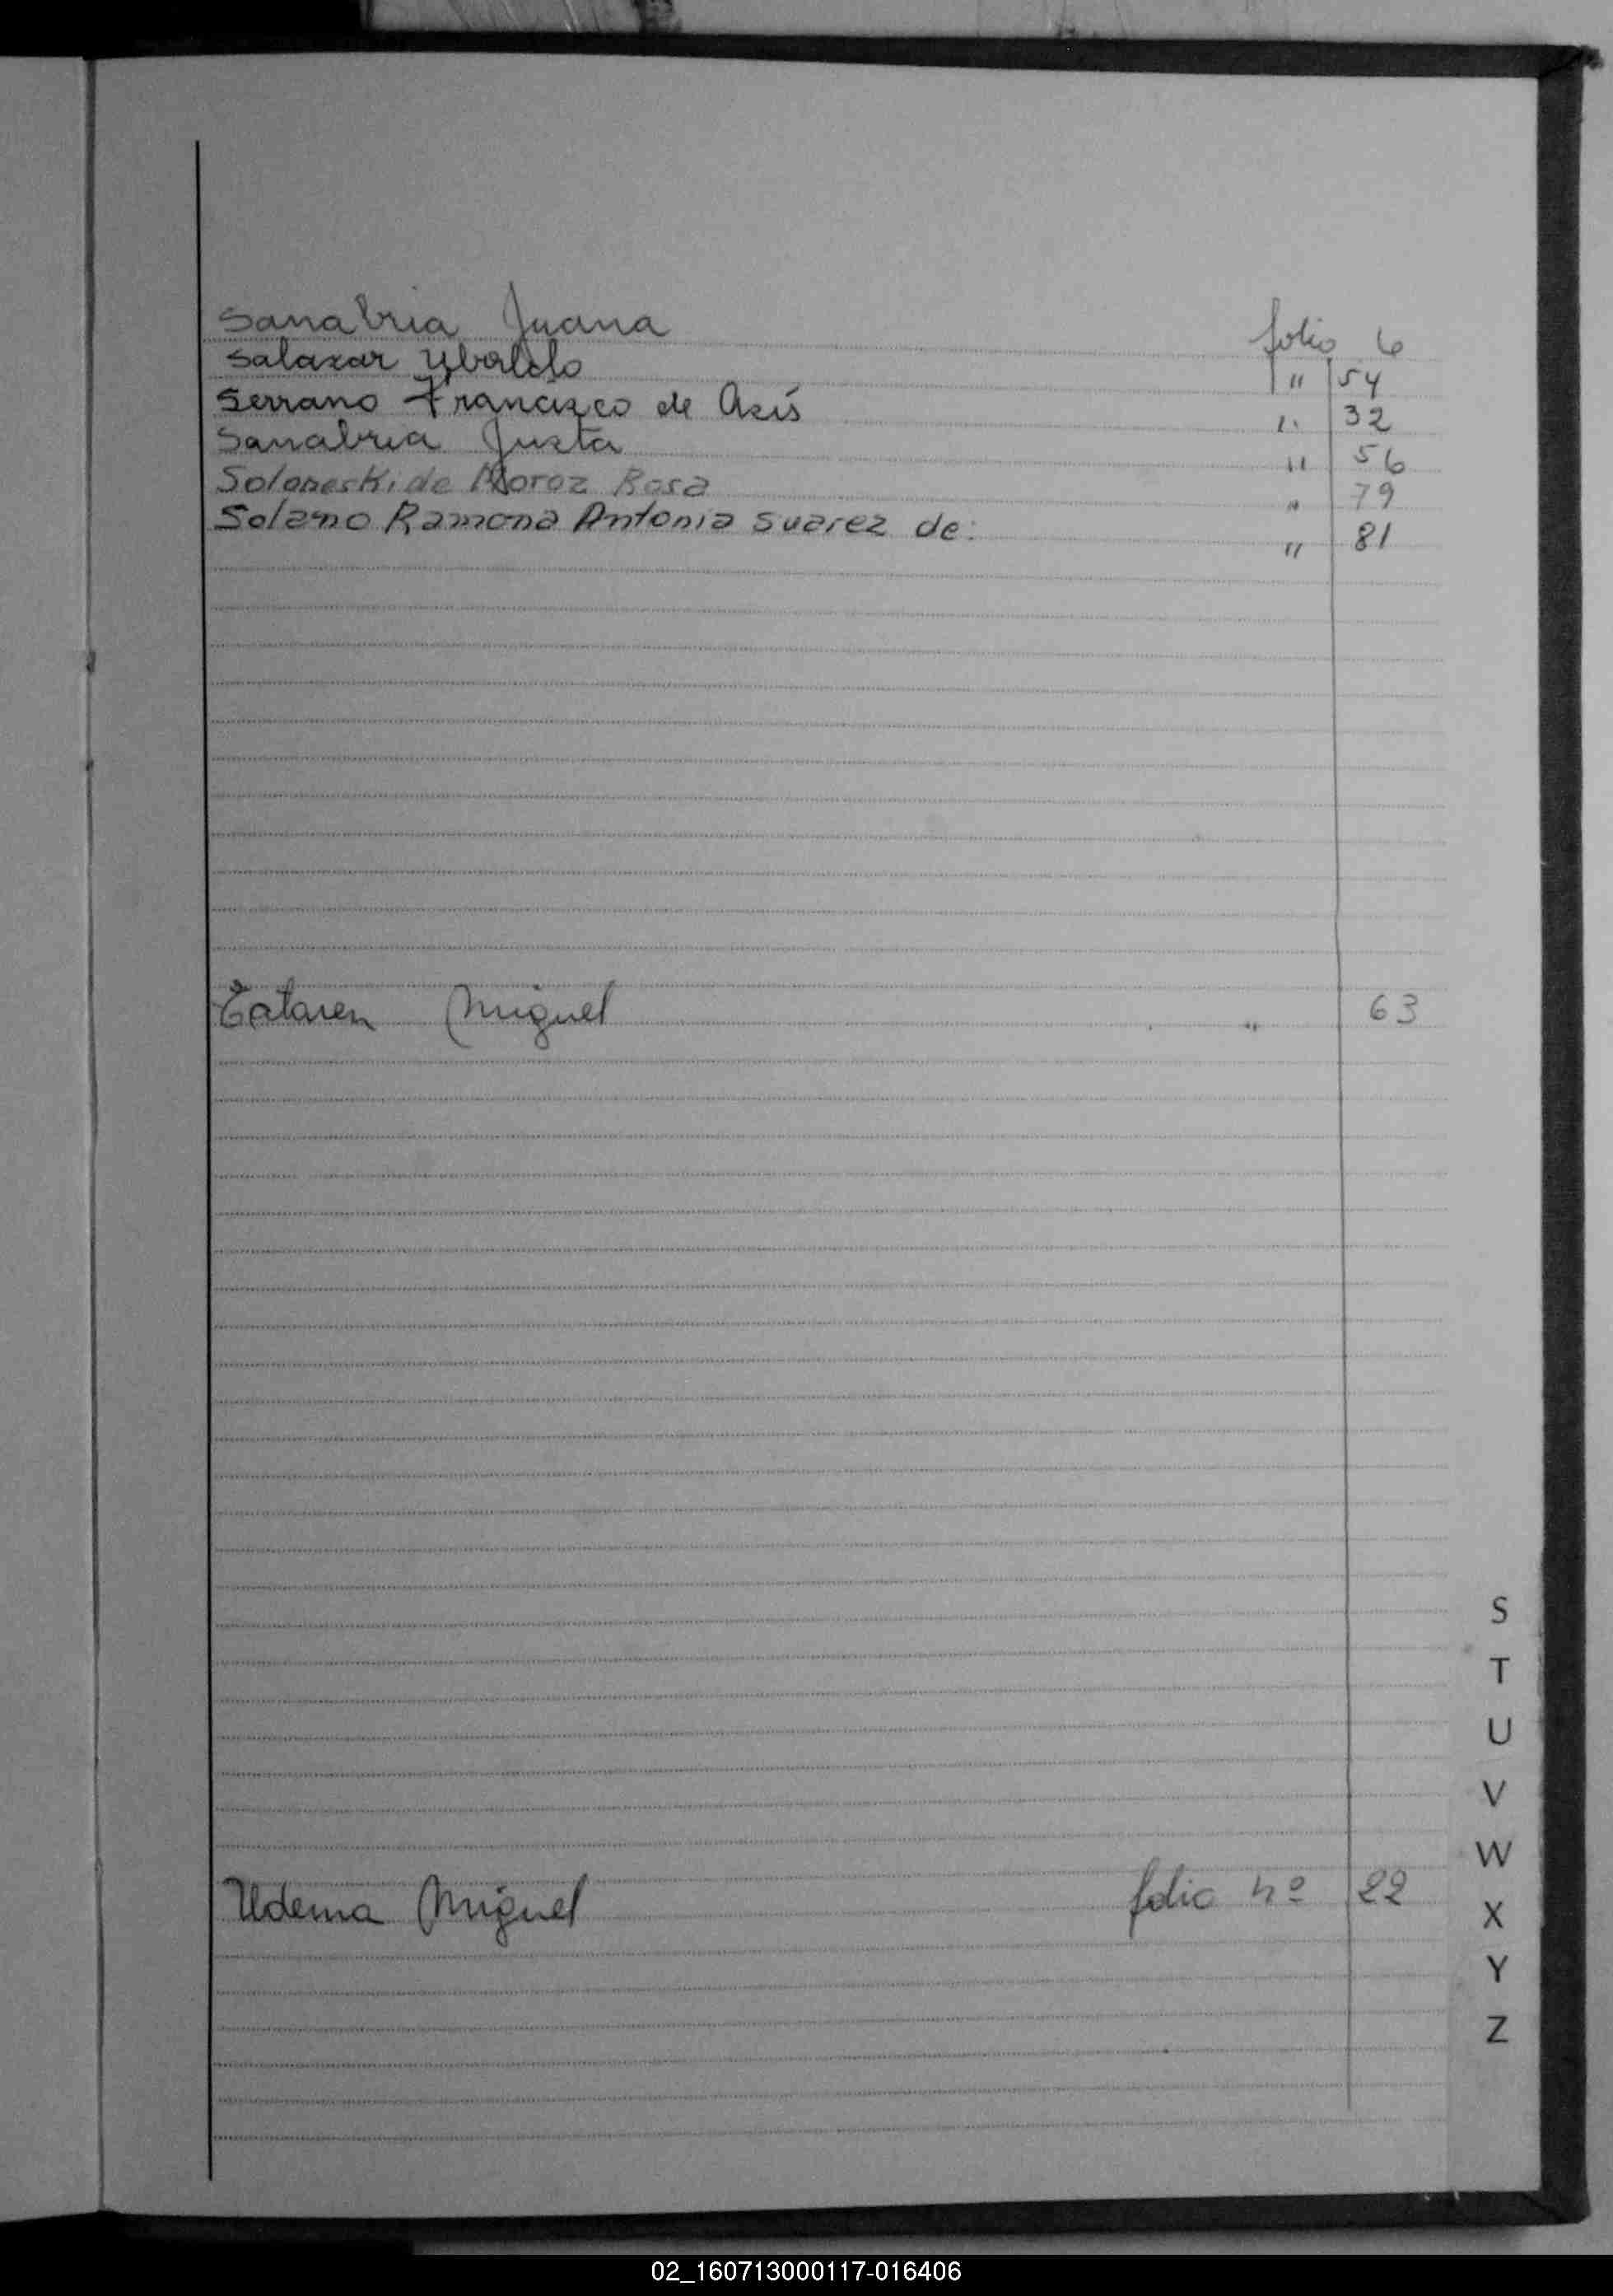 Sanabria Juana folio 6
Salazar Ybaldo " 54
Serrano Francisco de Asís " 32
Sanabria Justa " 56
Soloneski de Moroz Rosa " 79
Solano Ramona Antonia Suarez de: " 81
Tataren Miguel " 63
Udema Miguel folio nº 22
S
T
U
V
W
X
Y
Z
02_160713000117-016406